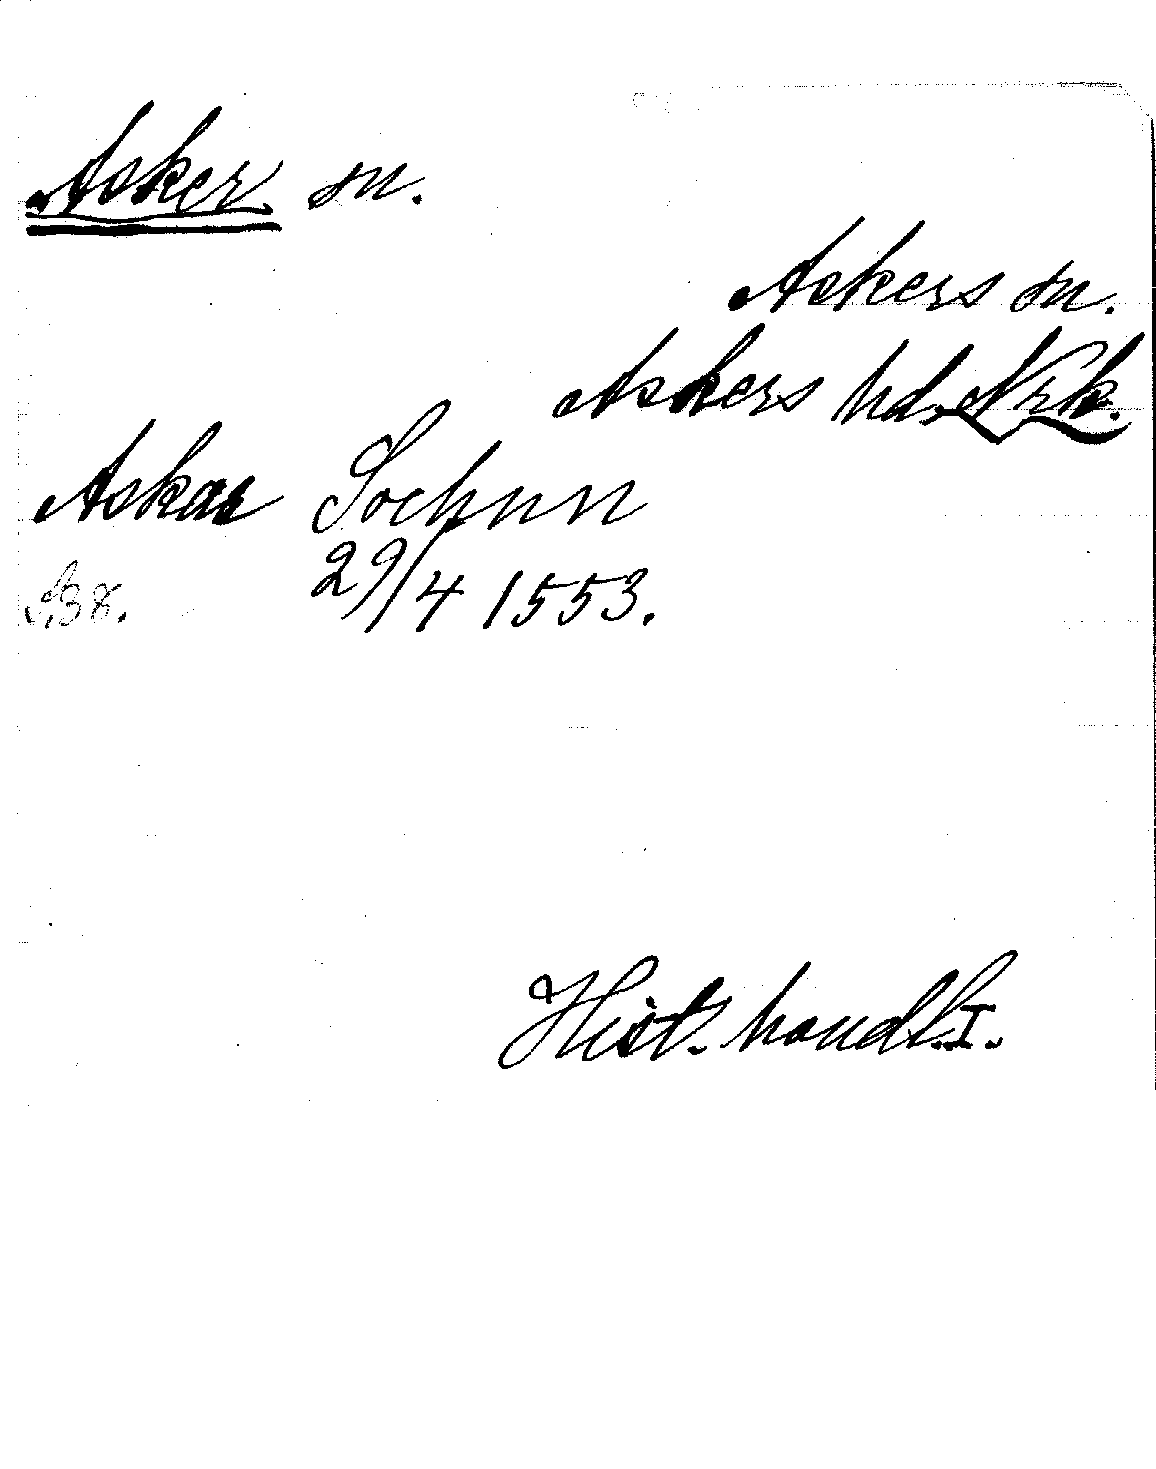 Asker sn.
Askers sn.
Askers hd, Nrk.
Askar Sochnn
S. 38. 29/4 1553.
Hist. handl. I.